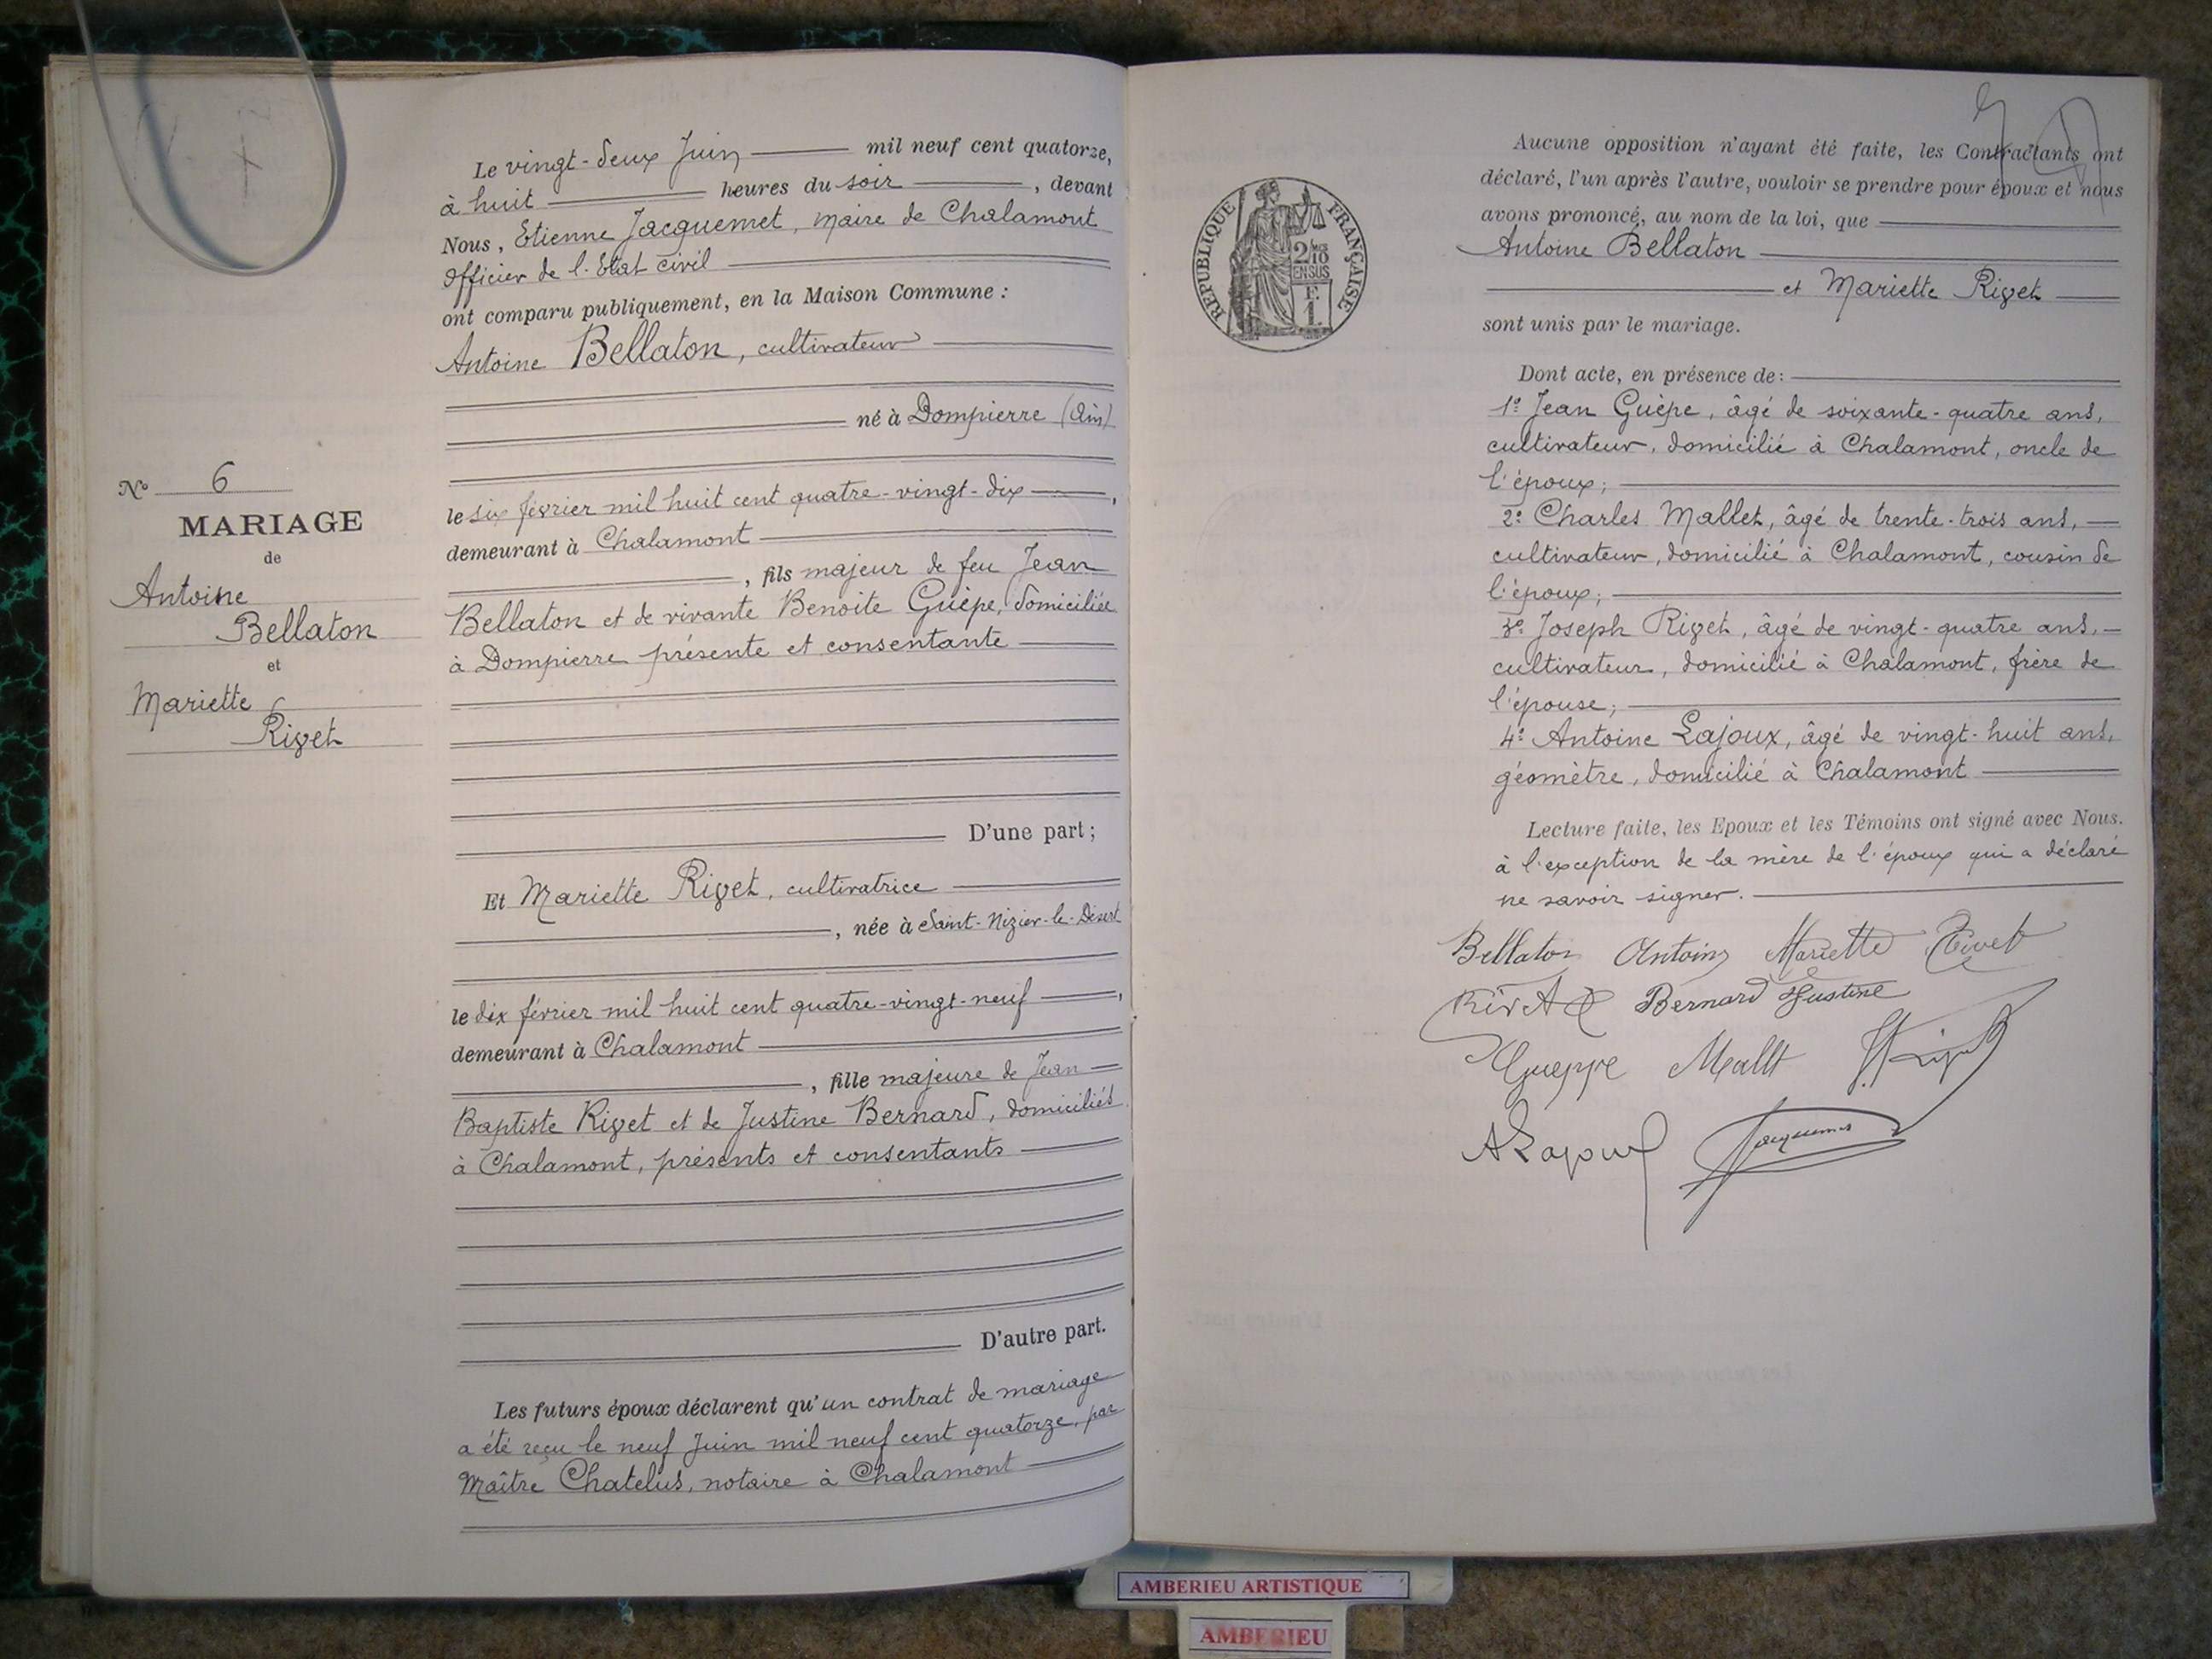 N° 6
MARIAGE
de
Antoine
Bellaton
et
Mariette
Rivet
Le vingt-deux Juin mil neuf cent quatorze,
à huit heures du soir, devant
Nous, Etienne Jacquemet, maire de Chalamont
Officier de l'Etat civil
ont comparu publiquement, en la Maison Commune :
Antoine Bellaton, cultivateur
né à Dompierre (Ain)
le six février mil huit cent quatre-vingt-dix,
demeurant à Chalamont
, fils majeur de feu Jean
Bellaton et de vivante Benoite Guèpe, domiciliée
à Dompierre présente et consentante
D'une part ;
Et Mariette Rivet, cultivatrice
, née à Saint-Nizier-le-Désert
le dix février mil huit cent quatre-vingt-neuf,
demeurant à Chalamont
, fille majeure de Jean
Baptiste Rivet et de Justine Bernard, domiciliés
à Chalamont, présents et consentants
D'autre part.
Les futurs époux déclarent qu'un contrat de mariage
a été reçu le neuf Juin mil neuf cent quatorze, par
Maître Chatelus, notaire à Chalamont
RÉPUBLIQUE FRANÇAISE
2/10
EN SUS
F.
1.
Aucune opposition n'ayant été faite, les Contractants ont
déclaré, l'un après l'autre, vouloir se prendre pour époux et nous
avons prononcé, au nom de la loi, que
Antoine Bellaton
et Mariette Rivet
sont unis par le mariage.
Dont acte, en présence de :
1° Jean Guèpe, âgé de soixante-quatre ans,
cultivateur, domicilié à Chalamont, oncle de
l'époux ;
2° Charles Mallet, âgé de trente-trois ans,
cultivateur, domicilié à Chalamont, cousin de
l'époux ;
3° Joseph Rivet, âgé de vingt-quatre ans,
cultivateur, domicilié à Chalamont, frère de
l'épouse ;
4° Antoine Lajoux, âgé de vingt-huit ans,
géomètre, domicilié à Chalamont
Lecture faite, les Epoux et les Témoins ont signé avec Nous.
à l'exception de la mère de l'époux qui a déclaré
ne savoir signer.
Bellaton Antoine Mariette Rivet
Rivet Bernard Justine
Gueppe Mallet J Rivet
A Lajoux Jacquemet
AMBERIEU ARTISTIQUE
AMBERIEU